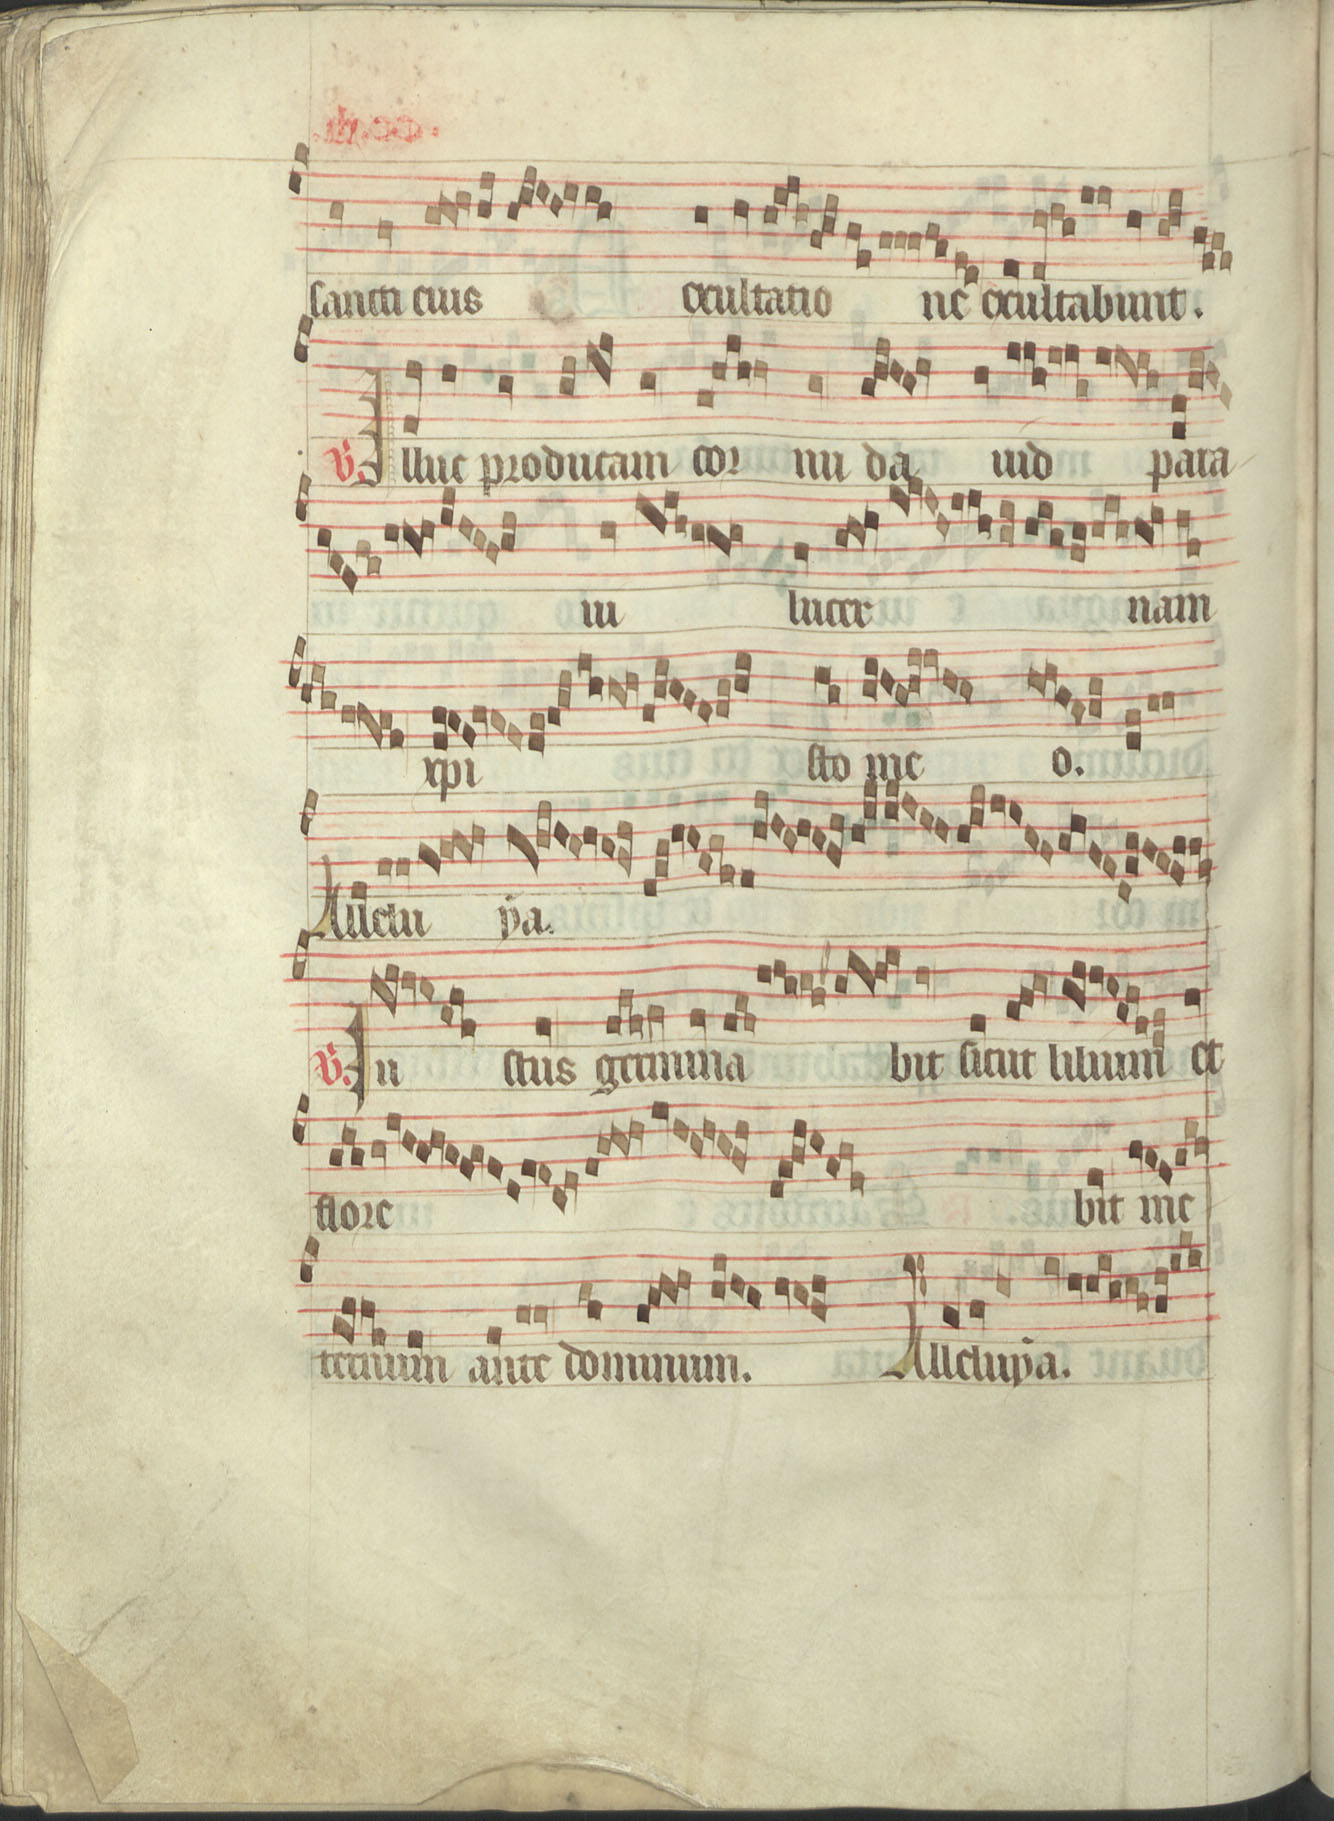 sancti eius exultatio ne exultabunt.
V. Illuc producam cor nu da uid para
ui lucer nam
xpi sto me o.
Alletu ya.
V. Iu stus germina bit sicut lilium et
flore bit ine
ternum ante dominum. Alleluya.